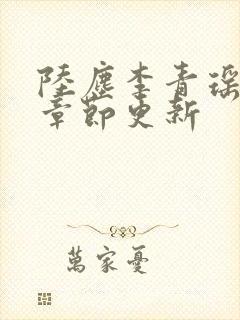 陸塵李青瑶
章節更新
萬家憂